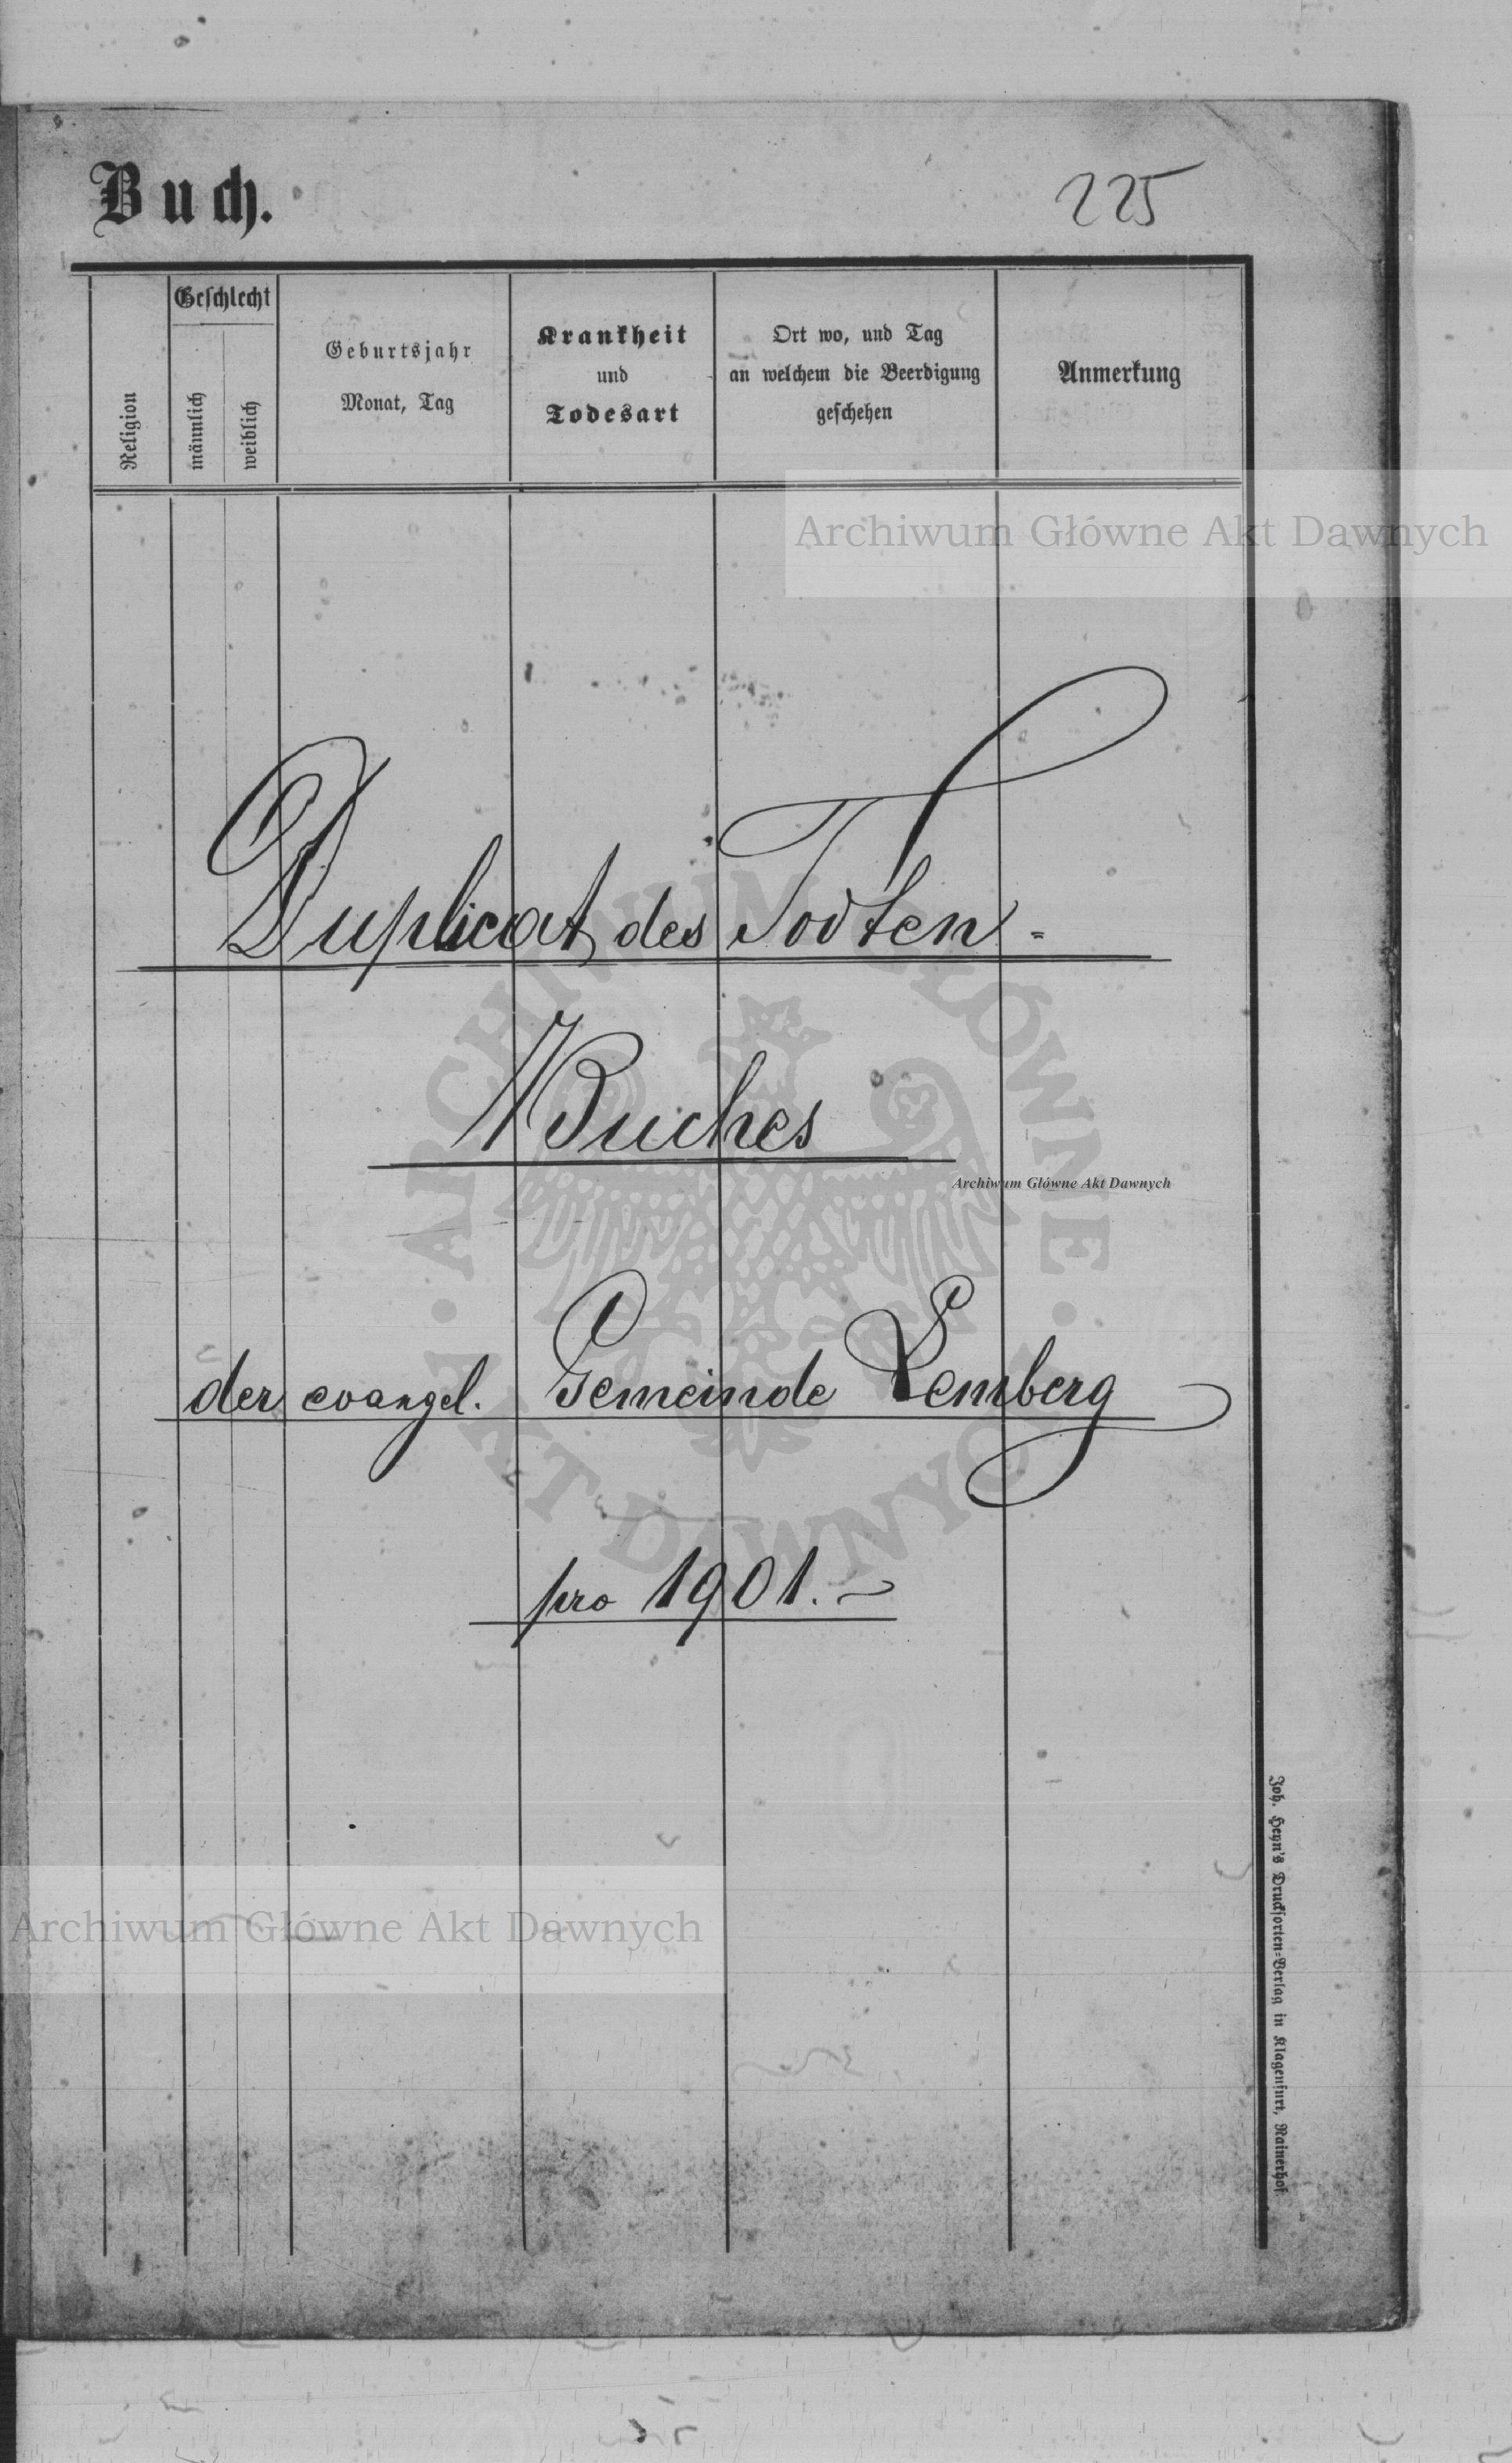 Buch.
225
Religion
Geschlecht
männlich
weiblich
Geburtsjahr
Monat, Tag
Krankheit
und
Todesart
Ort wo, und Tag
an welchem die Beerdigung
geschehen
Anmerkung
Archiwum Główne Akt Dawnych
Duplicat des Todten-
Buches
Archiwum Główne Akt Dawnych
der evangel. Gemeinde Lemberg
pro 1901.-
ARCHIWUM GŁÓWNE
AKT DAWNYCH
Joh. Heyn's Drucksorten-Verlag in Klagenfurt, Rainerhof.
Archiwum Główne Akt Dawnych